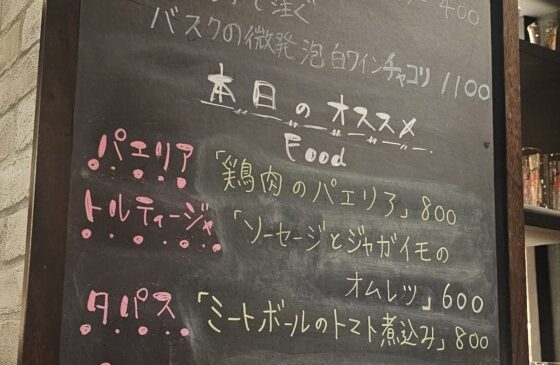 で注ぐ 400
バスクの微発泡白ワインチャコリ 1100
本日のオススメ
Food
パエリア「鶏肉のパエリア」800
トルティージャ「ソーセージとジャガイモの
オムレツ」600
タパス「ミートボールのトマト煮込み」800